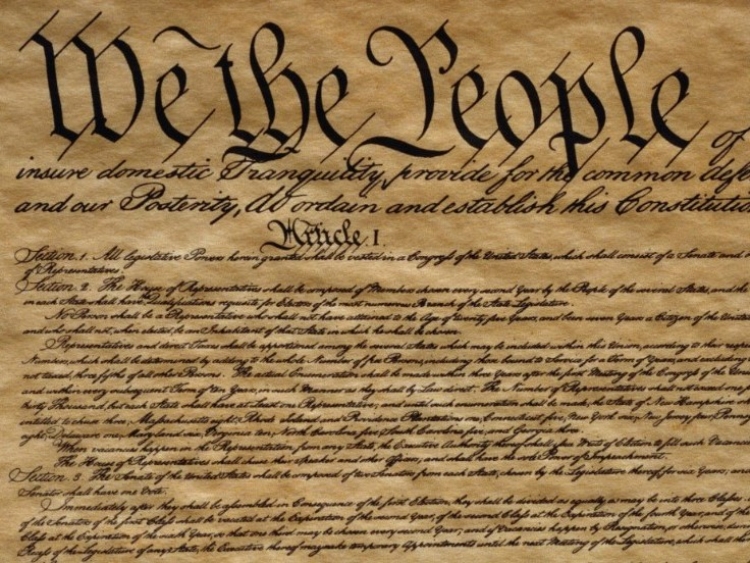 We the People of
insure domestic Tranquility, provide for the common defe
and our Posterity, do ordain and establish this Constitutio
Article. I.
Section. 1. All legislative Powers herein granted shall be vested in a Congress of the United States, which shall consist of a Senate and
of Representatives.
Section. 2. The House of Representatives shall be composed of Members chosen every second Year by the People of the several States, and the
in each State shall have Qualifications requisite for Electors of the most numerous Branch of the State Legislature.
No Person shall be a Representative who shall not have attained to the Age of twenty five Years, and been seven Years a Citizen of the United
and who shall not, when elected, be an Inhabitant of that State in which he shall be chosen.
Representatives and direct Taxes shall be apportioned among the several States which may be included within this Union, according to their respe
Numbers, which shall be determined by adding to the whole Number of free Persons, including those bound to Service for a Term of Years, and excluding
not taxed, three fifths of all other Persons. The actual Enumeration shall be made within three Years after the first Meeting of the Congress of the United
and within every subsequent Term of ten Years, in such Manner as they shall by Law direct. The Number of Representatives shall not exceed one for
thirty Thousand, but each State shall have at Least one Representative; and until such enumeration shall be made, the State of New Hampshire shall
entitled to chuse three, Massachusetts eight, Rhode Island and Providence Plantations one, Connecticut five, New York six, New Jersey four, Penn
eight, Delaware one, Maryland six, Virginia ten, North Carolina five, South Carolina five, and Georgia three.
When vacancies happen in the Representation from any State, the Executive Authority thereof shall issue Writs of Election to fill such Vacancies
The House of Representatives shall chuse their Speaker and other Officers; and shall have the sole Power of Impeachment.
Section. 3. The Senate of the United States shall be composed of two Senators from each State, chosen by the Legislature thereof, for six Years; and
Senator shall have one Vote.
Immediately after they shall be assembled in Consequence of the first Election, they shall be divided as equally as may be into three Classes.
of the Senators of the first Class shall be vacated at the Expiration of the second Year, of the second Class at the Expiration of the fourth Year, and of the
Class at the Expiration of the sixth Year, so that one third may be chosen every second Year; and if Vacancies happen by Resignation, or otherwise, dur
Recess of the Legislature of any State, the Executive thereof may make temporary Appointments until the next Meeting of the Legislature, which shall then